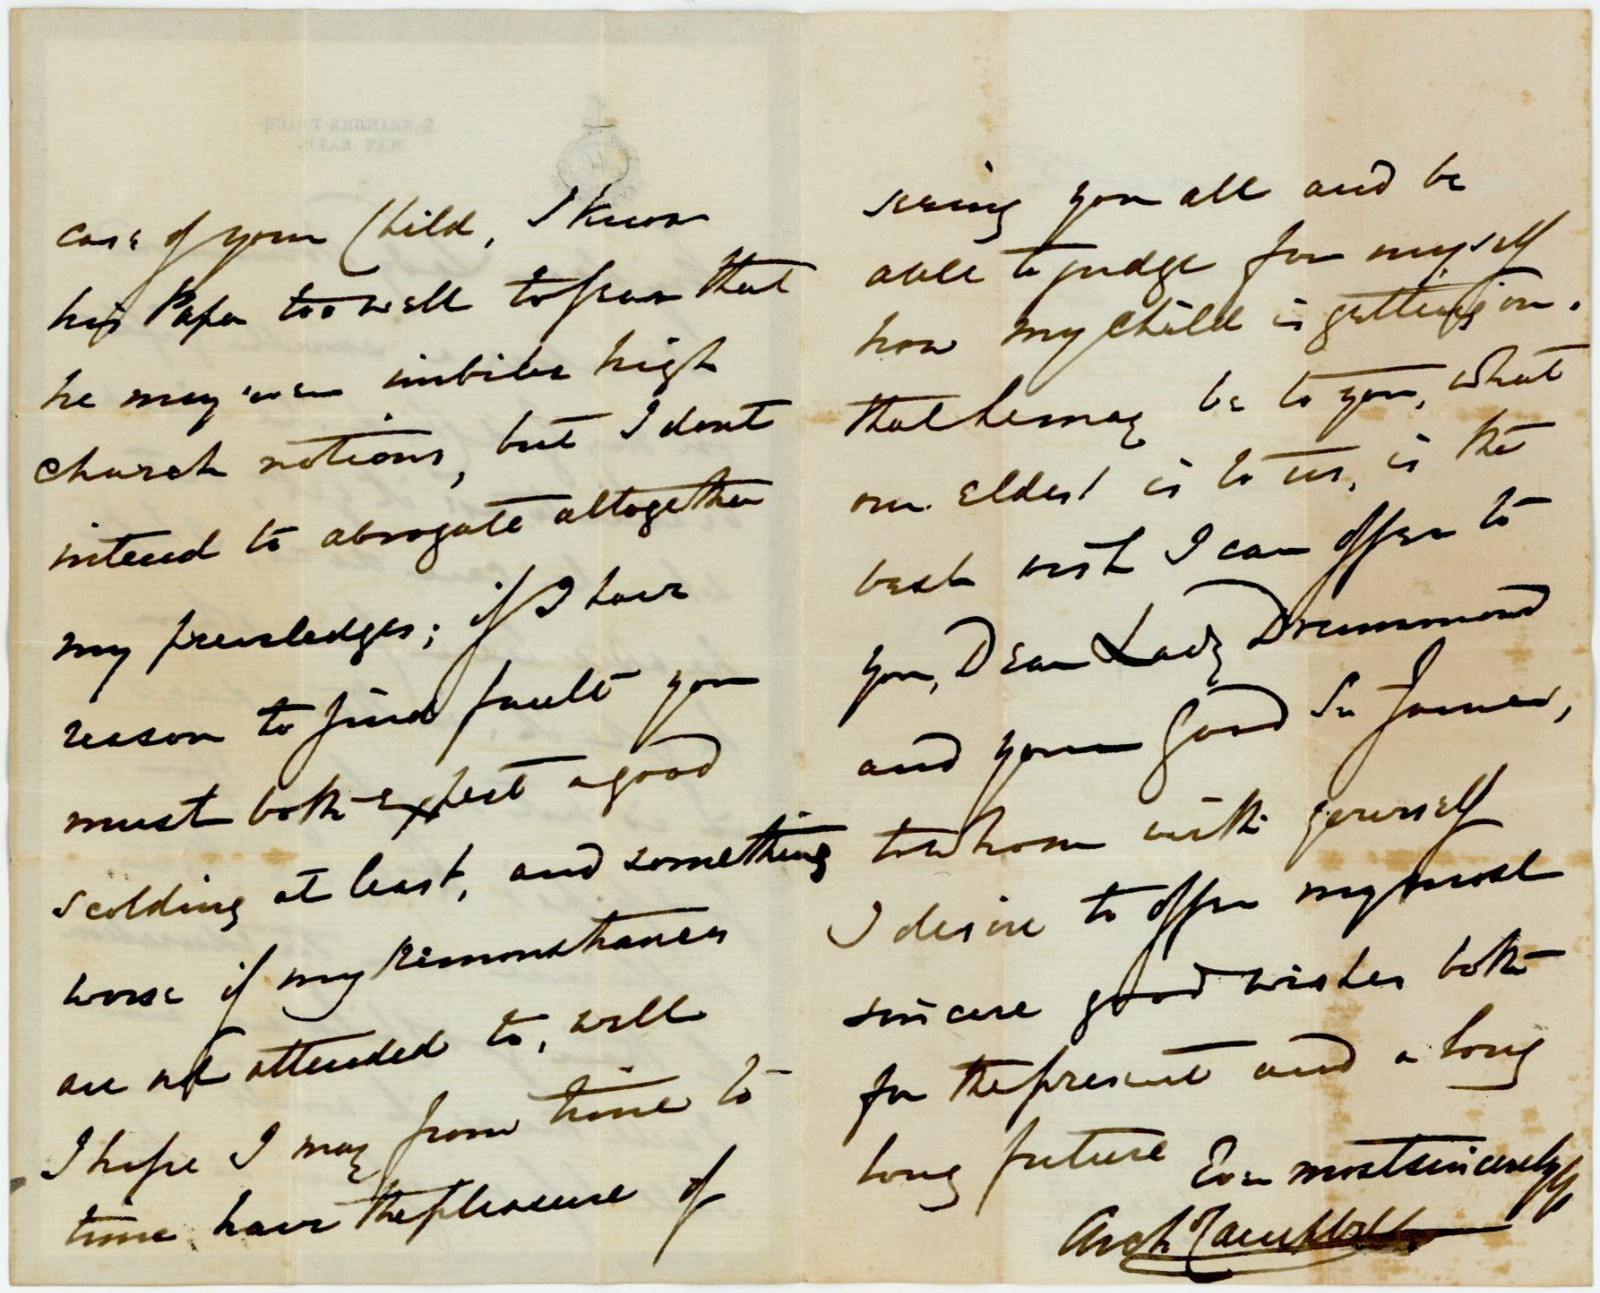 case of your Child, I know
his Papa too well to fear that
he may ever imbibe high
church notions, but I dont
intend to abrogate altogether
my priviledges; if I have
reason to find fault you
must both expect a good
scolding at least, and something
worse if my remonstrances
are not attended to, well
I hope I may from time to
time have the pleasure of
seeing you all and be
able to judge for myself
how my Child is getting on.
that he may be to you, what
our Eldest is to us, is the
best wish I can offer to
you, Dear Lady Drummond
and your good Sir James,
to whom with yourself
I desire to offer my most
sincere good wishes both
for the present and a long
long future Ever most sincerely yrs
Archd Campbell